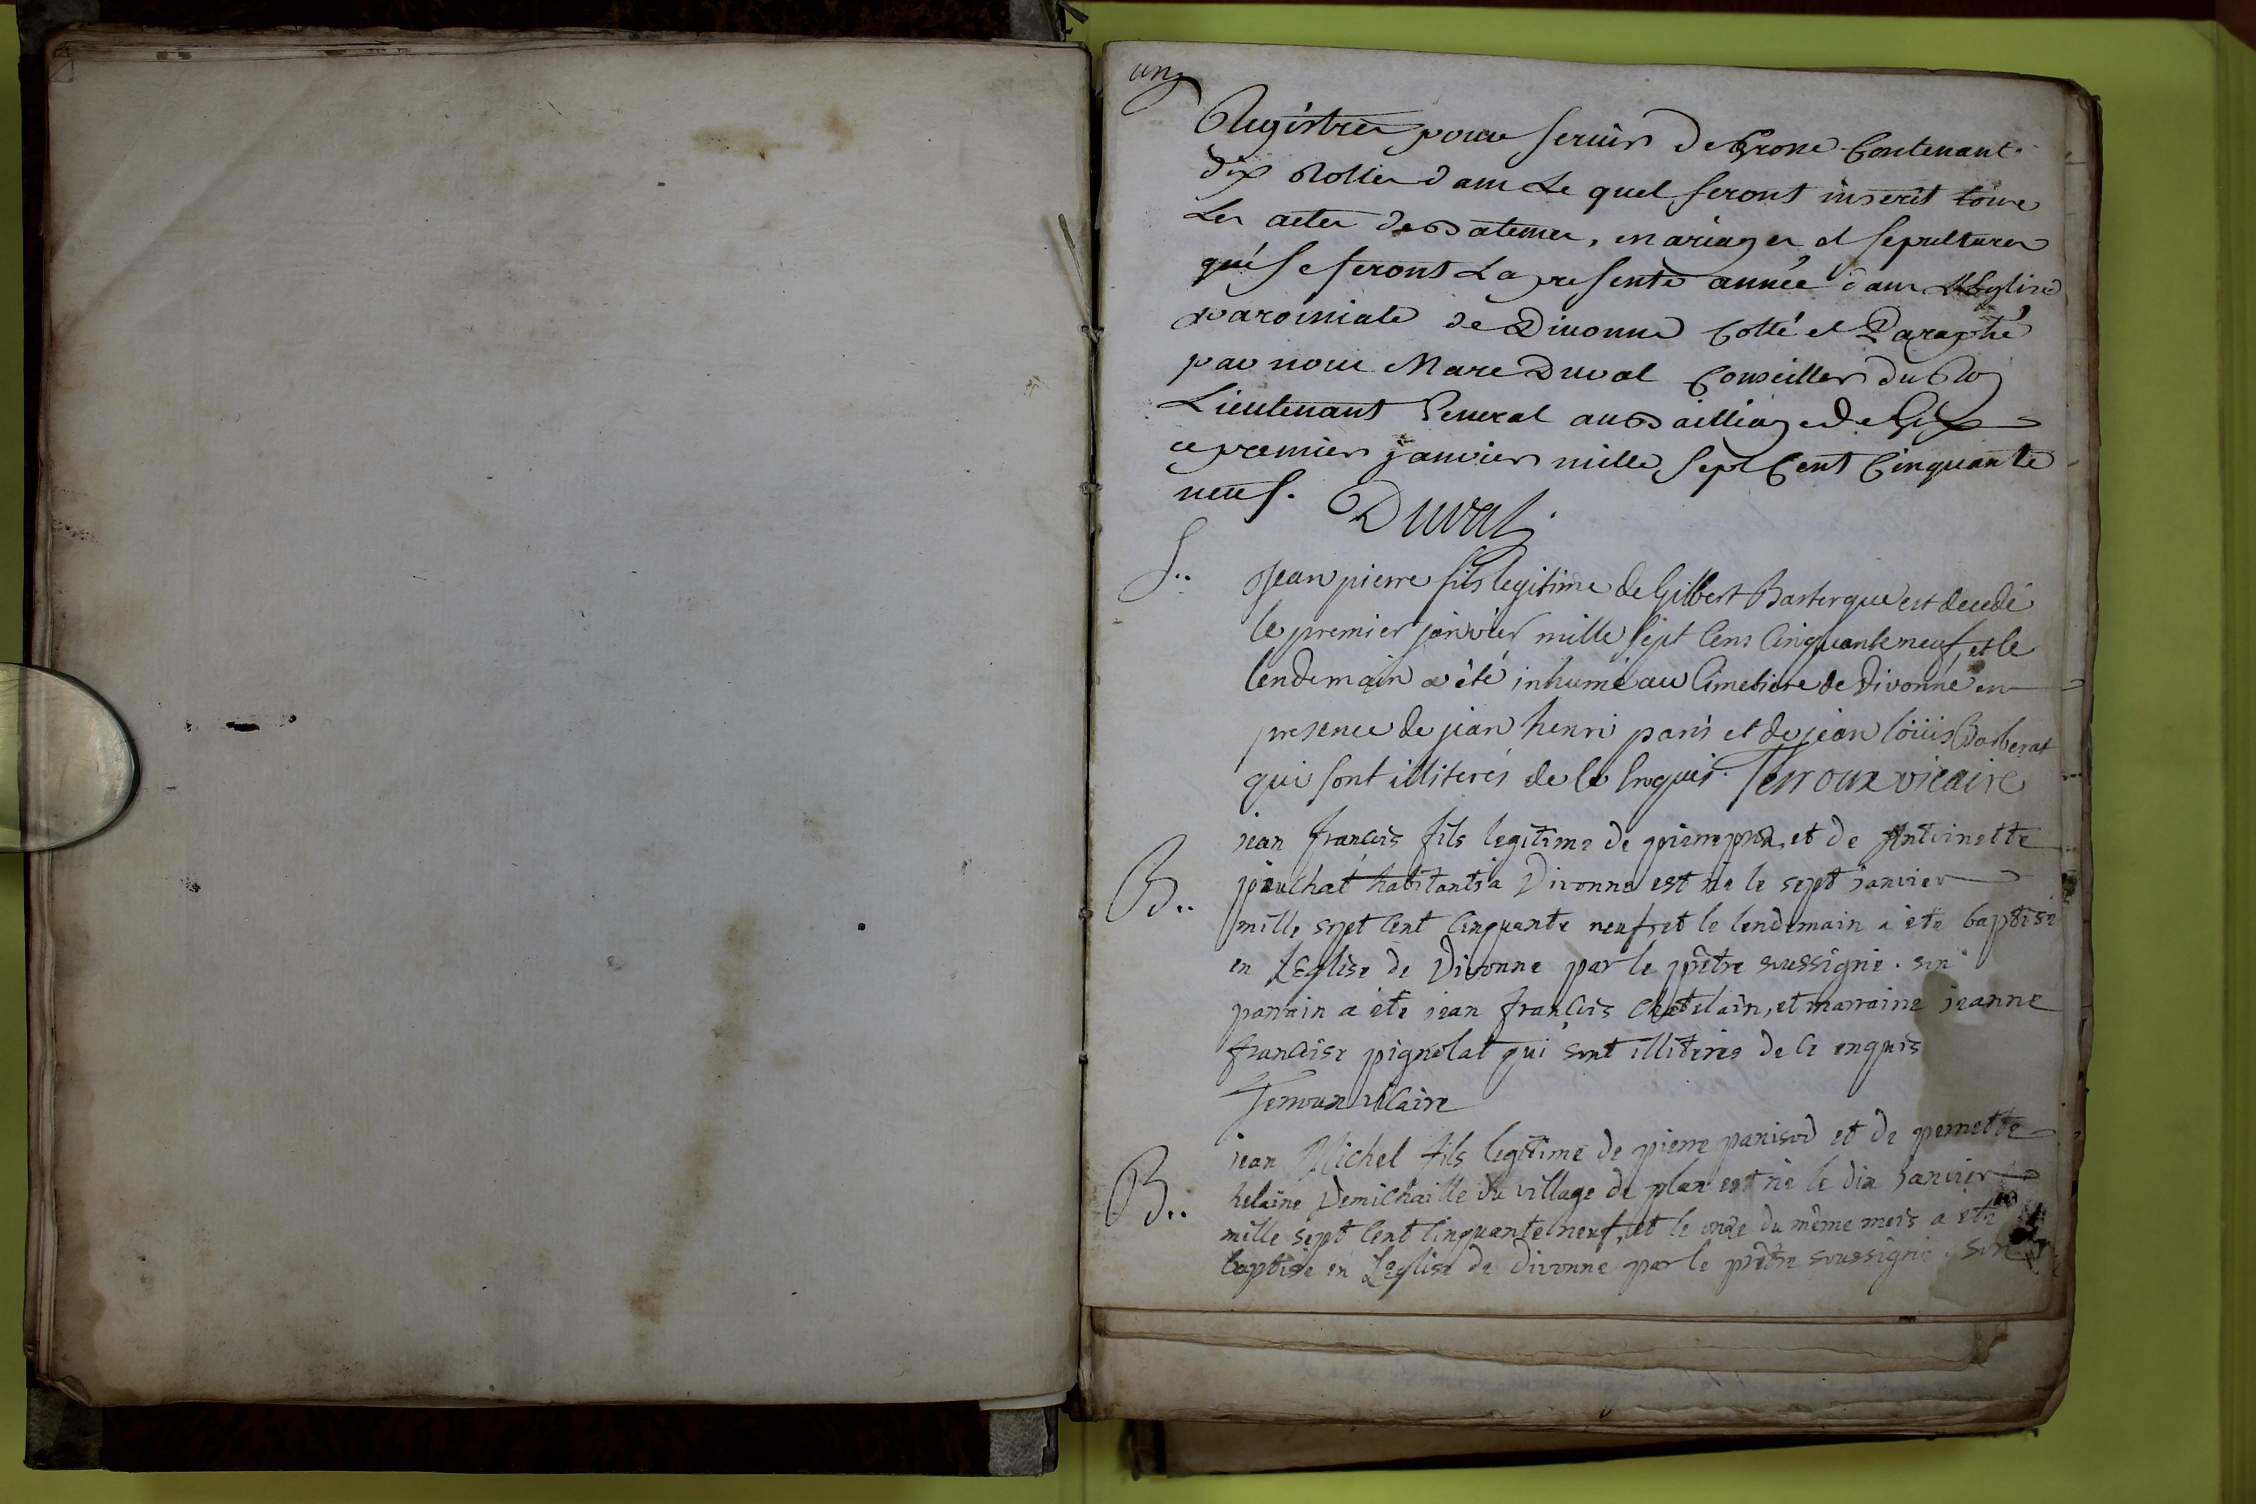 un
Registres pour servir de Grosse Contenant
dix Rolles dans Le quel seront inscrit tous
Les actes de Batemes, mariages et sepultures
qui se feront La presente année dans L'Eglise
paroissiale de Divonne Cotté et Paraphé
par nous Marc Duval Conseiller du Roy
Lieutenant General au Bailliage de Gex
ce premier janvier mille sept Cent Cinquante
neuf. Duval
S..
Jean pierre fils legitime de Gilbert est decedé
le premier janvier mille sept Cens Cinquante neuf, et le
lendemain a été inhumé au Cimetiere de Divonne en
presence de jean henri paris et de jean loüis Barberat
qui sont illiterés de ce enquis. Terroux vicaire
B..
jean francois fils legitime de pierre et de Antoinette
habitants a Divonne est né le sept janvier
mille sept Cent Cinquante neuf, et le lendemain a été baptisé
en L'Eglise de Divonne par le prêtre soussigné. son
parrain a été jean francois Chatelain, et marraine jeanne
francoise pignolat qui sont illiterés de ce enquis
Terroux vicaire
B..
jean Michel fils legitime de pierre panisod et de pernette
helaine Demichaille du village de plan est né le dix janvier
mille sept Cent Cinquante neuf, et le onze du même mois a été
baptisé en L'Eglise de Divonne par le prêtre soussigné. son